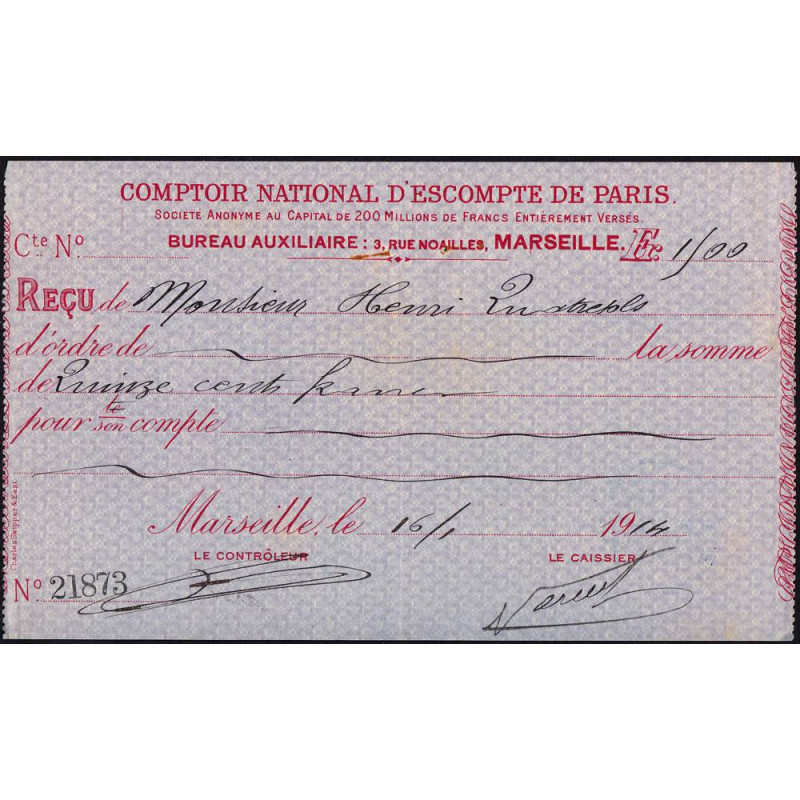 COMPTOIR NATIONAL D'ESCOMPTE DE PARIS.
SOCIÉTÉ ANONYME AU CAPITAL DE 200 MILLIONS DE FRANCS ENTIÈREMENT VERSÉS.
Cte No BUREAU AUXILIAIRE : 3, RUE NOAILLES, MARSEILLE. Fr.
REÇU de Monsieur Henri
d'ordre de la somme
de Quinze cents francs
pour le/son compte
Marseille, le 16/1 1914
LE CONTRÔLEUR LE CAISSIER
No 21873
Charles Skipper & East